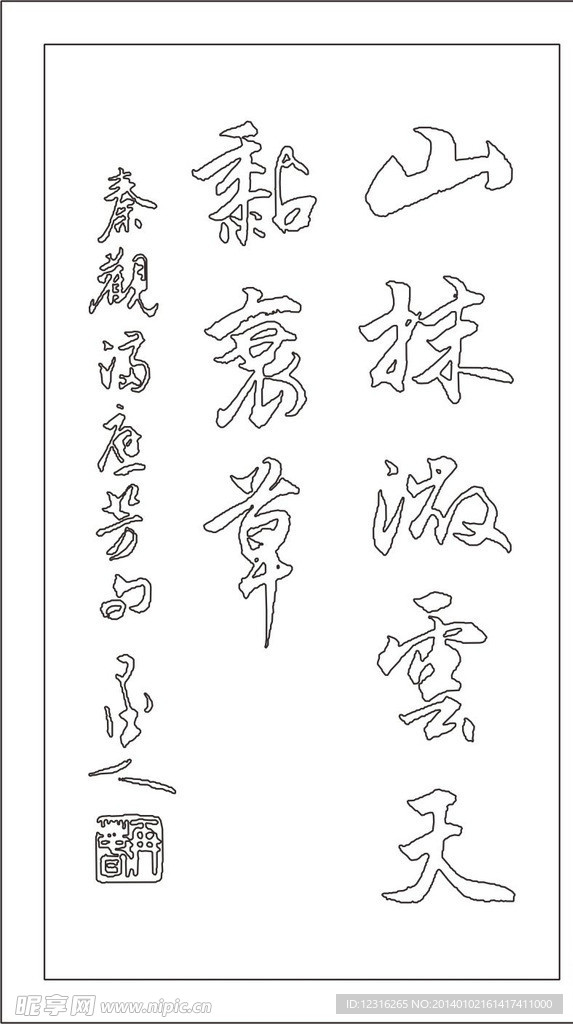 山抹微雲天
黏衰草
秦觀滿庭芳句
昵享网 www.nipic.cn
ID:12316265 NO:20140102161417411000